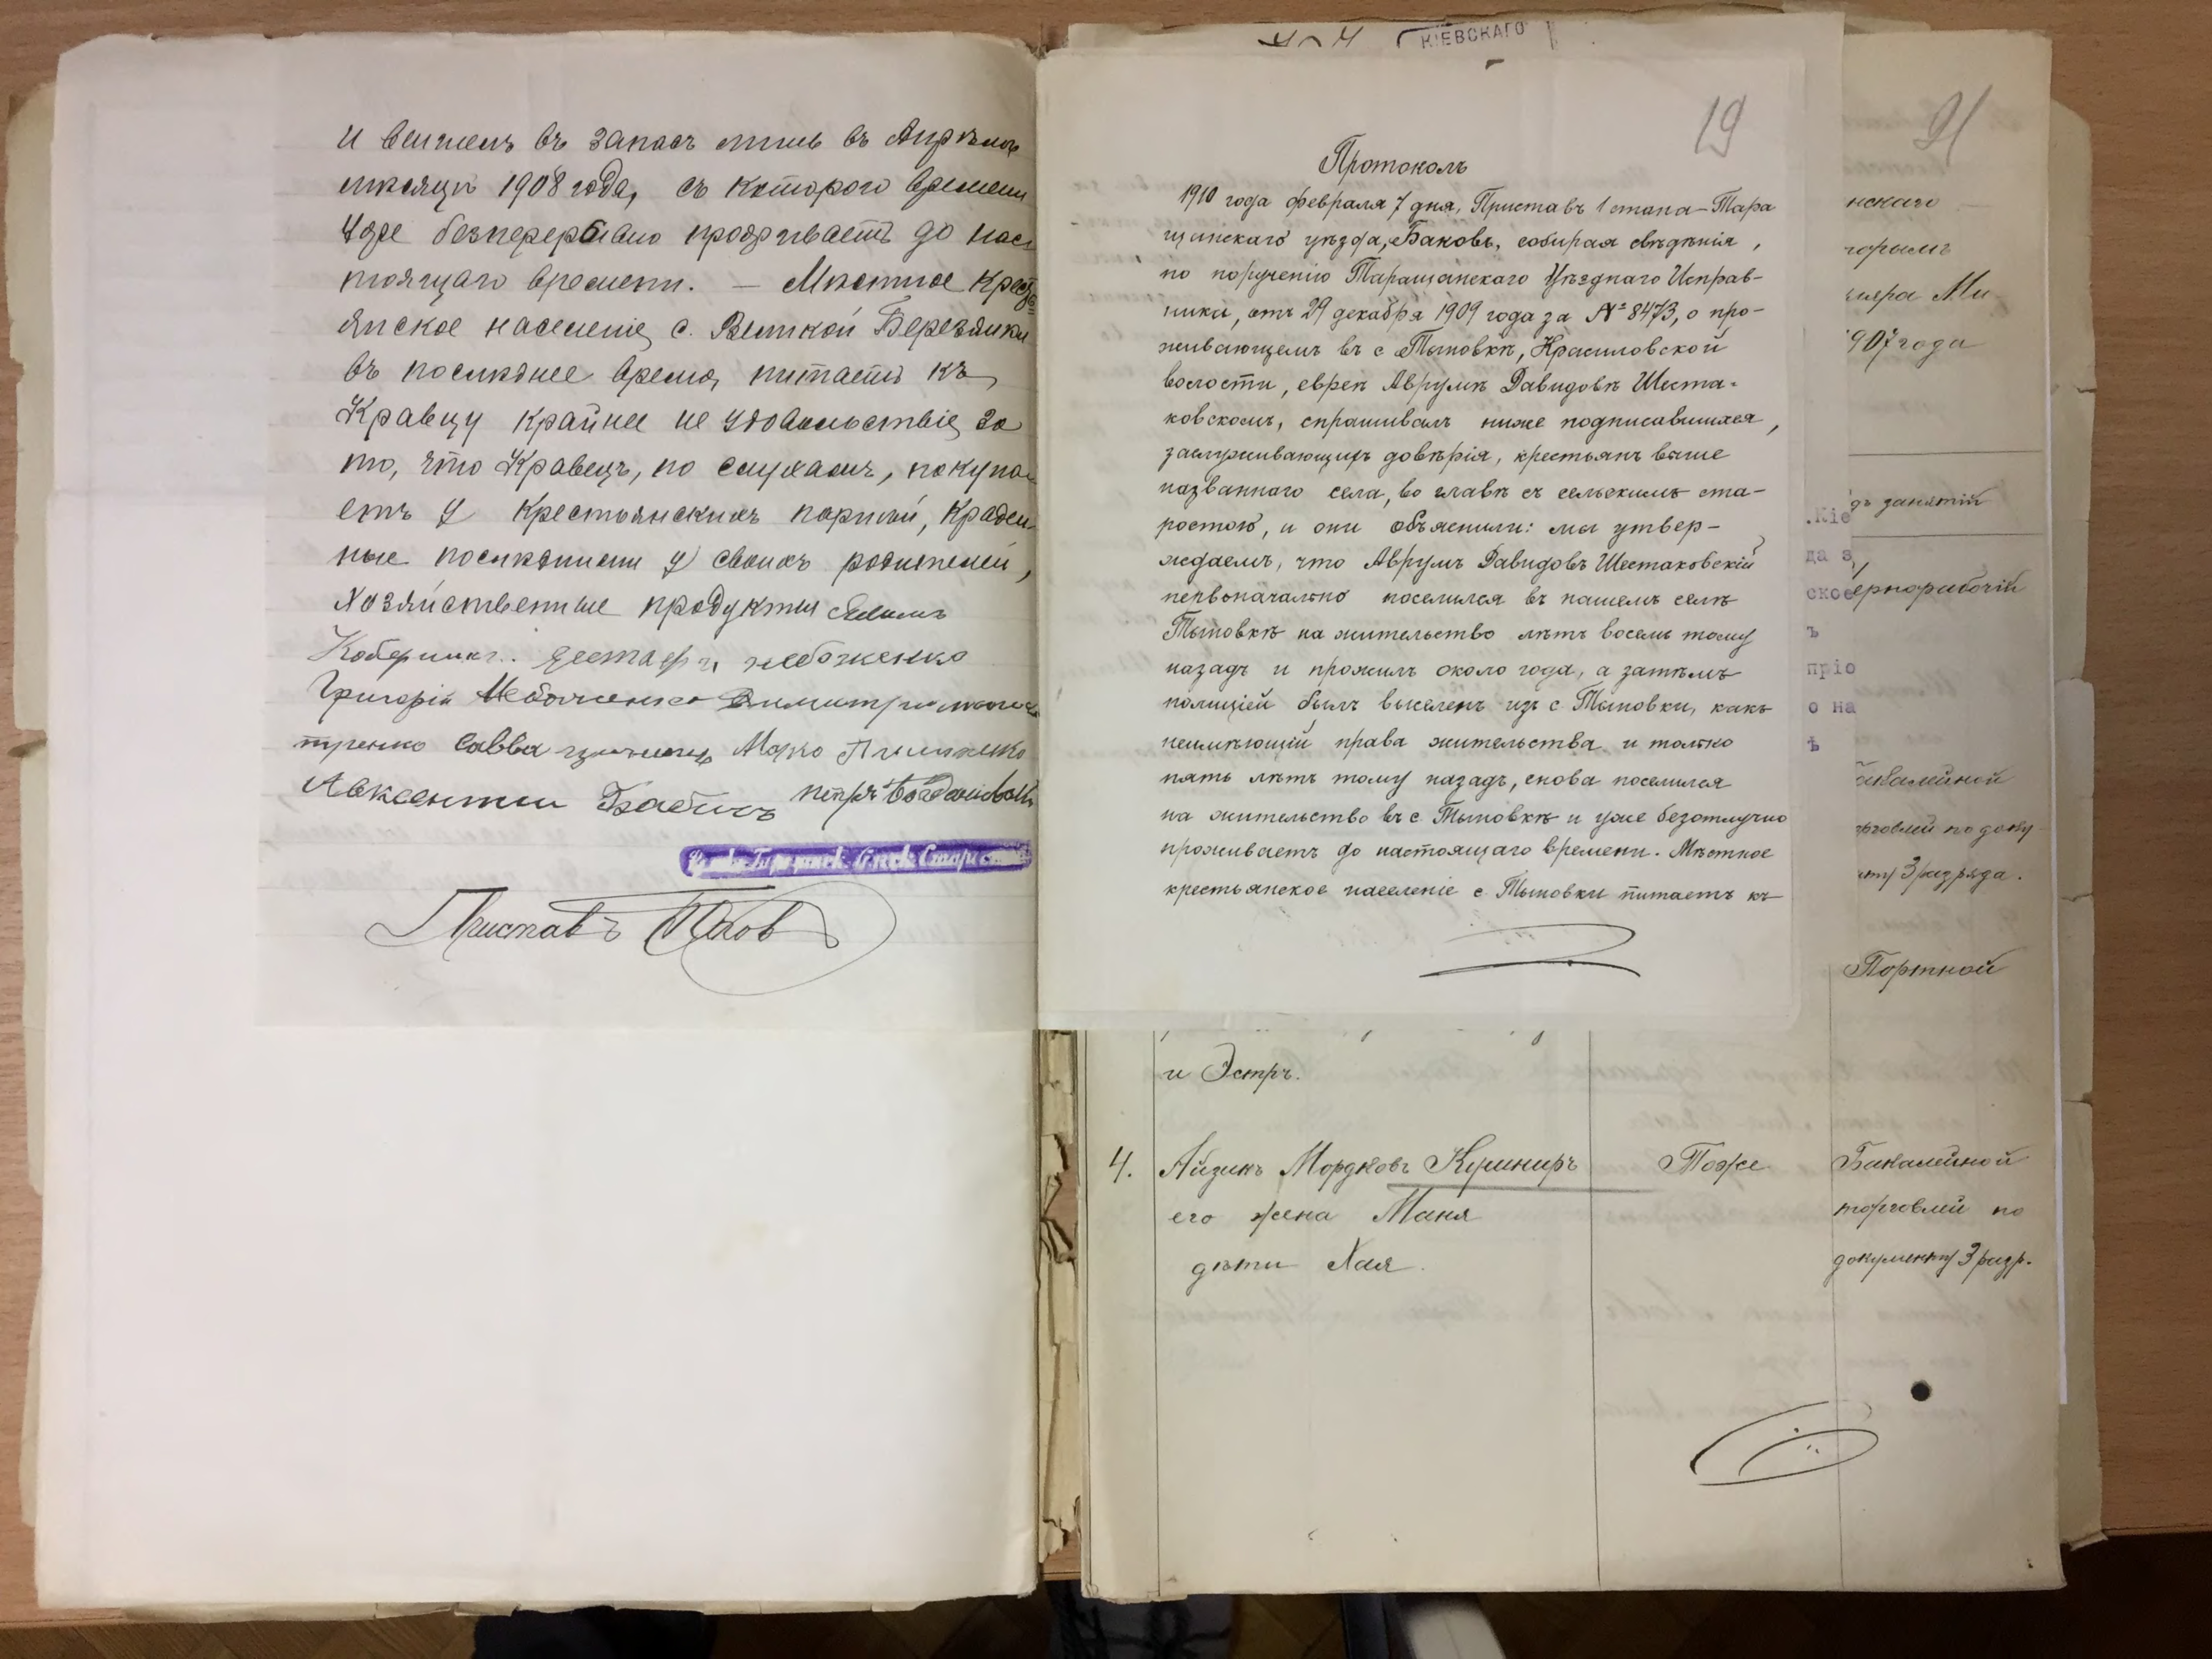 и вышелъ въ запасъ лишь въ Апрѣлѣ
мѣсяцѣ 1908 года, съ котораго времени
уже безпрерывно проживаетъ до нас-
тоящаго времени. — Мѣстное крестъ-
янское населеніе, с. Великой Березянки
въ послѣднее время, питаетъ къ
Кравцу крайнее не удовольствіе за
то, что Кравецъ, по слухамъ, покупа-
етъ у крестьянскихъ парней, краден-
ные послѣдними у своихъ родителей,
хозяйственные продукты
Небоженко
Григорій Небоженко
Савва Марко
Авксентий Бабичъ петръ
Приставъ Баковъ
КІЕВСКАГО
19
Протоколъ
1910 года февраля 7 дня, Приставъ 1 стана Тара
щанскаго уѣзда, Баковъ, собирая свѣдѣнія,
по порученію Таращанскаго Уѣзднаго Исправ-
ника, отъ 29 декабря 1909 года за № 8473, о про-
живающемъ въ с Тыновкѣ, Красиловской
волости, евреѣ Аврумѣ Давидовѣ Шеста-
ковскомъ, спрашивалъ ниже подписавшихся,
заслуживающихъ довѣрія, крестьянъ выше
названнаго села, во главѣ съ сельскимъ ста-
ростою, и они объяснили: мы утвер-
ждаемъ, что Аврумъ Давидовъ Шестаковскій
первоначально поселился въ нашемъ селѣ
Тыновкѣ на жительство лѣтъ восемь тому
назадъ и прожилъ около года, а затѣмъ
полиціей былъ выселенъ изъ с Тыновки, какъ
неимѣющій права жительства и только
пять лѣтъ тому назадъ, снова поселился
на жительство въ с Тыновкѣ и уже безотлучно
проживаетъ до настоящаго времени. Мѣстное
крестьянское населеніе с Тыновки питаетъ къ
21
нскаго
907 года
.Кіе
дъ занятій
да з
ское
ернорабочій
ъ
пріо
о на
ѣ
акалейной
рговлей по доку-
нту 3 разряда.
Портной
и Эстръ.
4. Айзикъ Мордковъ Кушниръ Тоже Бакалейной
его жена Маня торговлей по
дѣти Хая. документу 3 разр.